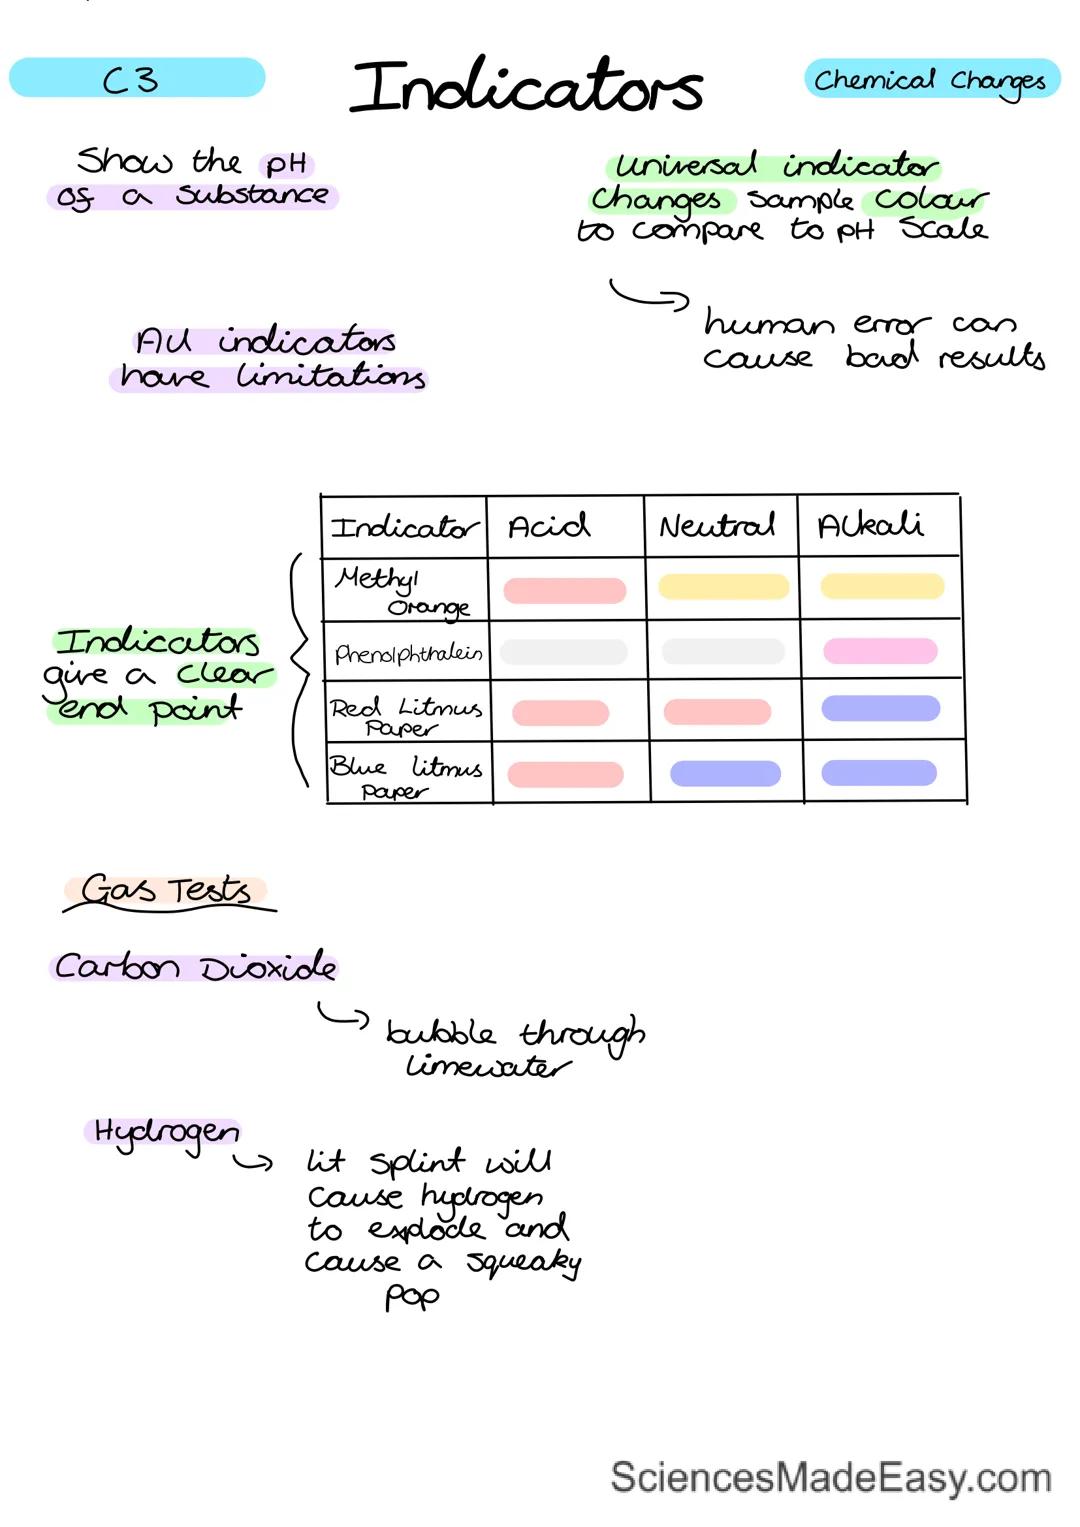 C3
Indicators
Chemical Changes
Show the pH
of a substance
Universal indicator
changes sample colour
to compare to pH scale
human error can
cause bad results
All indicators
have limitations
Indicator Acid Neutral Alkali
Methyl
Orange
Phenolphthalein
Red Litmus
Paper
Blue litmus
paper
Indicators
give a clear
end point
Gas Tests
Carbon Dioxide
bubble through
limewater
Hydrogen
lit splint will
cause hydrogen
to explode and
cause a squeaky
pop
SciencesMadeEasy.com